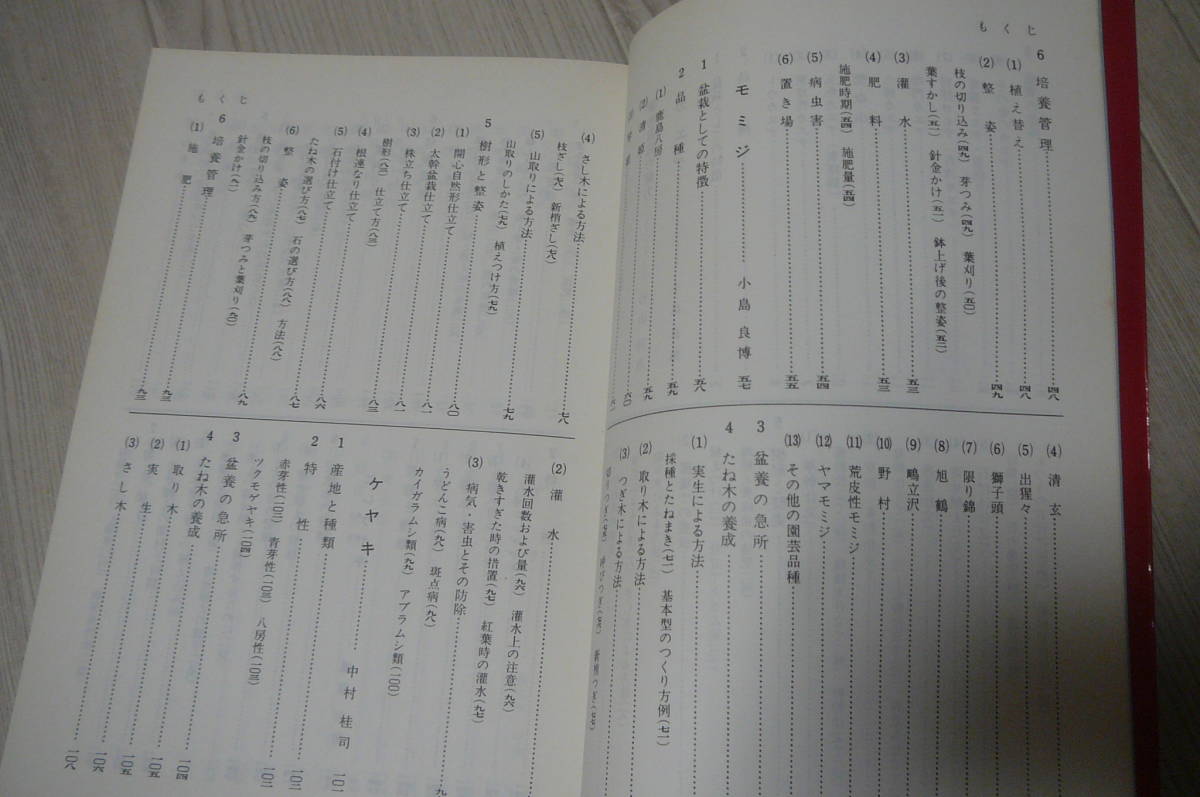 もくじ
6 培養管理……四八
(1) 植え替え……四八
(2) 整姿……四九
枝の切り込み(四九) 芽つみ(四九) 葉刈り(五〇)
葉すかし(五一) 針金かけ(五一) 鉢上げ後の整姿(五二)
(3) 灌水……五三
(4) 肥料……五三
施肥時期(五四) 施肥量(五四)
(5) 病虫害……五四
(6) 置き場……五五
モミジ……小島良博 五七
1 盆栽としての特徴……五八
2 品種……五九
(1) 鹿島八房……五九
(2)……六〇
(4) 清玄
(5) 出猩々
(6) 獅子頭
(7) 限り錦
(8) 旭鶴
(9) 鴫立沢
(10) 野村
(11) 荒皮性モミジ
(12) ヤマモミジ
(13) その他の園芸品種
3 盆養の急所
4 たね木の養成
(1) 実生による方法
採種とたねまき(七一) 基本型のつくり方例(七一)
(2) 取り木による方法
(3) つぎ木による方法
もくじ
(4) さし木による方法……七八
枝ざし 新梢ざし
(5) 山取りによる方法……七九
山取りのしかた(七九) 植えつけ方(七九)
5 樹形と整姿……八〇
(1) 開心自然形仕立て……八〇
(2) 太幹盆栽仕立て……八一
(3) 株立ち仕立て……八一
(4) 根連なり仕立て……八三
樹形(八三) 仕立て方(八三)
(5) 石付け仕立て……八六
たね木の選び方(八七) 石の選び方(八八) 方法(八八)
(6) 整姿……八七
枝の切り込み方(八九) 芽つみと葉刈り(九〇)
針金かけ(九一)……八九
6 培養管理……九三
(1) 施肥……九三
(2) 灌水
灌水回数および量(九六) 灌水上の注意(九六)
乾きすぎた時の措置(九七) 紅葉時の灌水(九七)
(3) 病気・害虫とその防除
うどんこ病 斑点病
カイガラムシ類(九九) アブラムシ類(一〇〇)
ケヤキ……中村桂司 一〇一
1 産地と種類……一〇二
2 特性……一〇二
赤芽性(一〇三) 青芽性(一〇三) 八房性(一〇三)
ツクモゲヤキ(一〇四)
3 盆養の急所……一〇四
4 たね木の養成……一〇五
(1) 取り木……一〇五
(2) 実生……一〇六
(3) さし木……一〇八